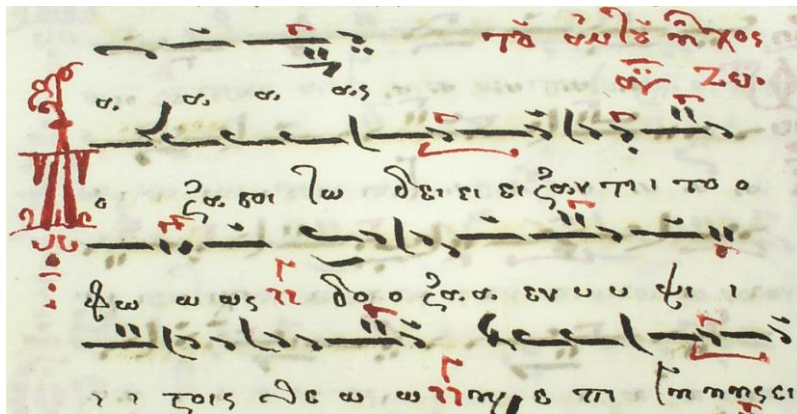 τοῦ αὐτοῦ ἦχος
α α α ας
Δ ο ξα σοι τω δει ει ει ξαν τι ι το ο
φω ω ως δο ο ξα α εν υ υ ψι ι
ι ι στοις θε ω ω ε πι γη η ης ει